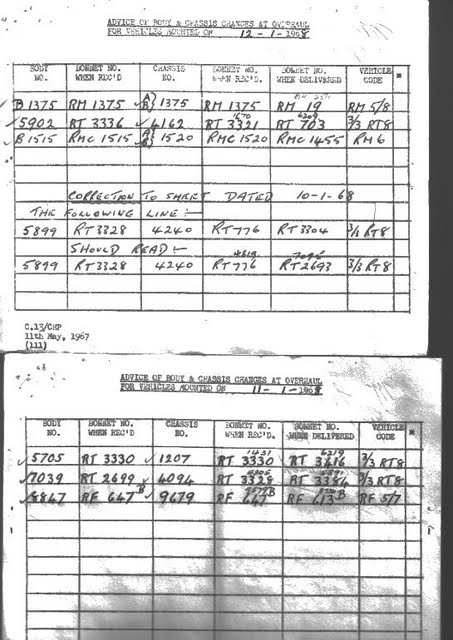 ADVICE OF BODY & CHASSIS CHANGES AT OVERHAUL
FOR VEHICLES MOUNTED ON 12-1-1968
BODY NO. BONNET NO. WHEN REC'D CHASSIS NO. BONNET NO. WHEN REC'D. BONNET NO. WHEN DELIVERED VEHICLE CODE *
B 1375 RM 1375 A} B} 1375 RM 1375 RM 19 RM 5/8
1670 6209
5902 RT 3336 4162 RT 3321 RT 703 3/3 RT8
B 1515 RMC 1515 1520 RMC 1520 RMC 1455 RM 6
CORRECTION TO SHEET DATED 10-1-68
THE FOLLOWING LINE :-
5899 RT 3328 4240 RT 776 RT 3304 3/1 RT8
SHOULD READ :-
4819 7095
5899 RT 3328 4240 RT 776 RT 2693 3/3 RT8
C.13/CHP
11th May, 1967
(111)
ADVICE OF BODY & CHASSIS CHANGES AT OVERHAUL
FOR VEHICLES MOUNTED ON 11-1-1968
BODY NO. BONNET NO. WHEN REC'D CHASSIS NO. BONNET NO. WHEN REC'D. BONNET NO. WHEN DELIVERED VEHICLE CODE *
1431 6219
5705 RT 3330 1207 RT 3330 RT 3416 3/3 RT8
7039 RT 2699 4094 RT 3328 RT 3384 3/3 RT8
8847 RF 647 B 9679 RF 647 RF 613 B RF 5/7